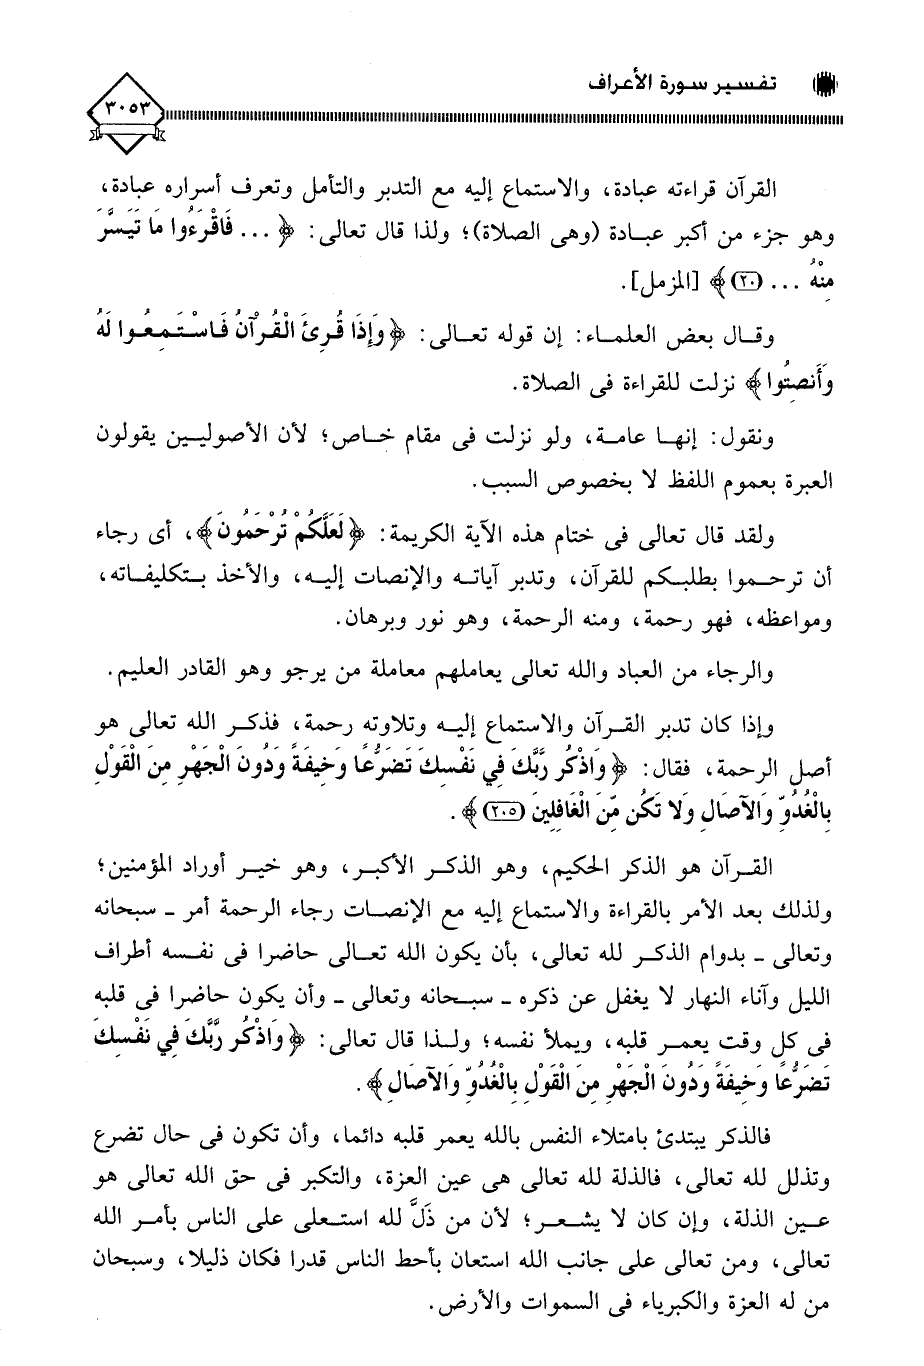 تفسير سورة الأعراف
٣٠٥٣
القرآن قراءته عبادة، والاستماع إليه مع التدبر والتأمل وتعرف أسراره عبادة،
وهو جزء من أكبر عبادة (وهى الصلاة)؛ ولذا قال تعالى: ﴿ ... فَاقْرَءُوا مَا تَيَسَّرَ
مِنْهُ ... (٢٠)﴾ [المزمل].
وقال بعض العلماء: إن قوله تعالى: ﴿وَإِذَا قُرِئَ الْقُرْآنُ فَاسْتَمِعُوا لَهُ
وَأَنصِتُوا﴾ نزلت للقراءة فى الصلاة.
ونقول: إنها عامة، ولو نزلت فى مقام خاص؛ لأن الأصوليين يقولون
العبرة بعموم اللفظ لا بخصوص السبب.
ولقد قال تعالى فى ختام هذه الآية الكريمة: ﴿لَعَلَّكُمْ تُرْحَمُونَ﴾، أى رجاء
أن ترحموا بطلبكم للقرآن، وتدبر آياته والإنصات إليه، والأخذ بتكليفاته،
ومواعظه، فهو رحمة، ومنه الرحمة، وهو نور وبرهان.
والرجاء من العباد والله تعالى يعاملهم معاملة من يرجو وهو القادر العليم.
وإذا كان تدبر القرآن والاستماع إليه وتلاوته رحمة، فذكر الله تعالى هو
أصل الرحمة، فقال: ﴿وَاذْكُر رَّبَّكَ فِي نَفْسِكَ تَضَرُّعًا وَخِيفَةً وَدُونَ الْجَهْرِ مِنَ الْقَوْلِ
بِالْغُدُوِّ وَالآصَالِ وَلا تَكُن مِّنَ الْغَافِلِينَ (٢٠٥)﴾.
القرآن هو الذكر الحكيم، وهو الذكر الأكبر، وهو خير أوراد المؤمنين؛
ولذلك بعد الأمر بالقراءة والاستماع إليه مع الإنصات رجاء الرحمة أمر - سبحانه
وتعالى - بدوام الذكر لله تعالى، بأن يكون الله تعالى حاضرا فى نفسه أطراف
الليل وآناء النهار لا يغفل عن ذكره - سبحانه وتعالى - وأن يكون حاضرا فى قلبه
فى كل وقت يعمر قلبه، ويملأ نفسه؛ ولذا قال تعالى: ﴿وَاذْكُر رَّبَّكَ فِي نَفْسِكَ
تَضَرُّعًا وَخِيفَةً وَدُونَ الْجَهْرِ مِنَ الْقَوْلِ بِالْغُدُوِّ وَالآصَالِ﴾.
فالذكر يبتدئ بامتلاء النفس بالله يعمر قلبه دائما، وأن تكون فى حال تضرع
وتذلل لله تعالى، فالذلة لله تعالى هى عين العزة، والتكبر فى حق الله تعالى هو
عين الذلة، وإن كان لا يشعر؛ لأن من ذَلَّ لله استعلى على الناس بأمر الله
تعالى، ومن تعالى على جانب الله استعان بأحط الناس قدرا فكان ذليلا، وسبحان
من له العزة والكبرياء فى السموات والأرض.